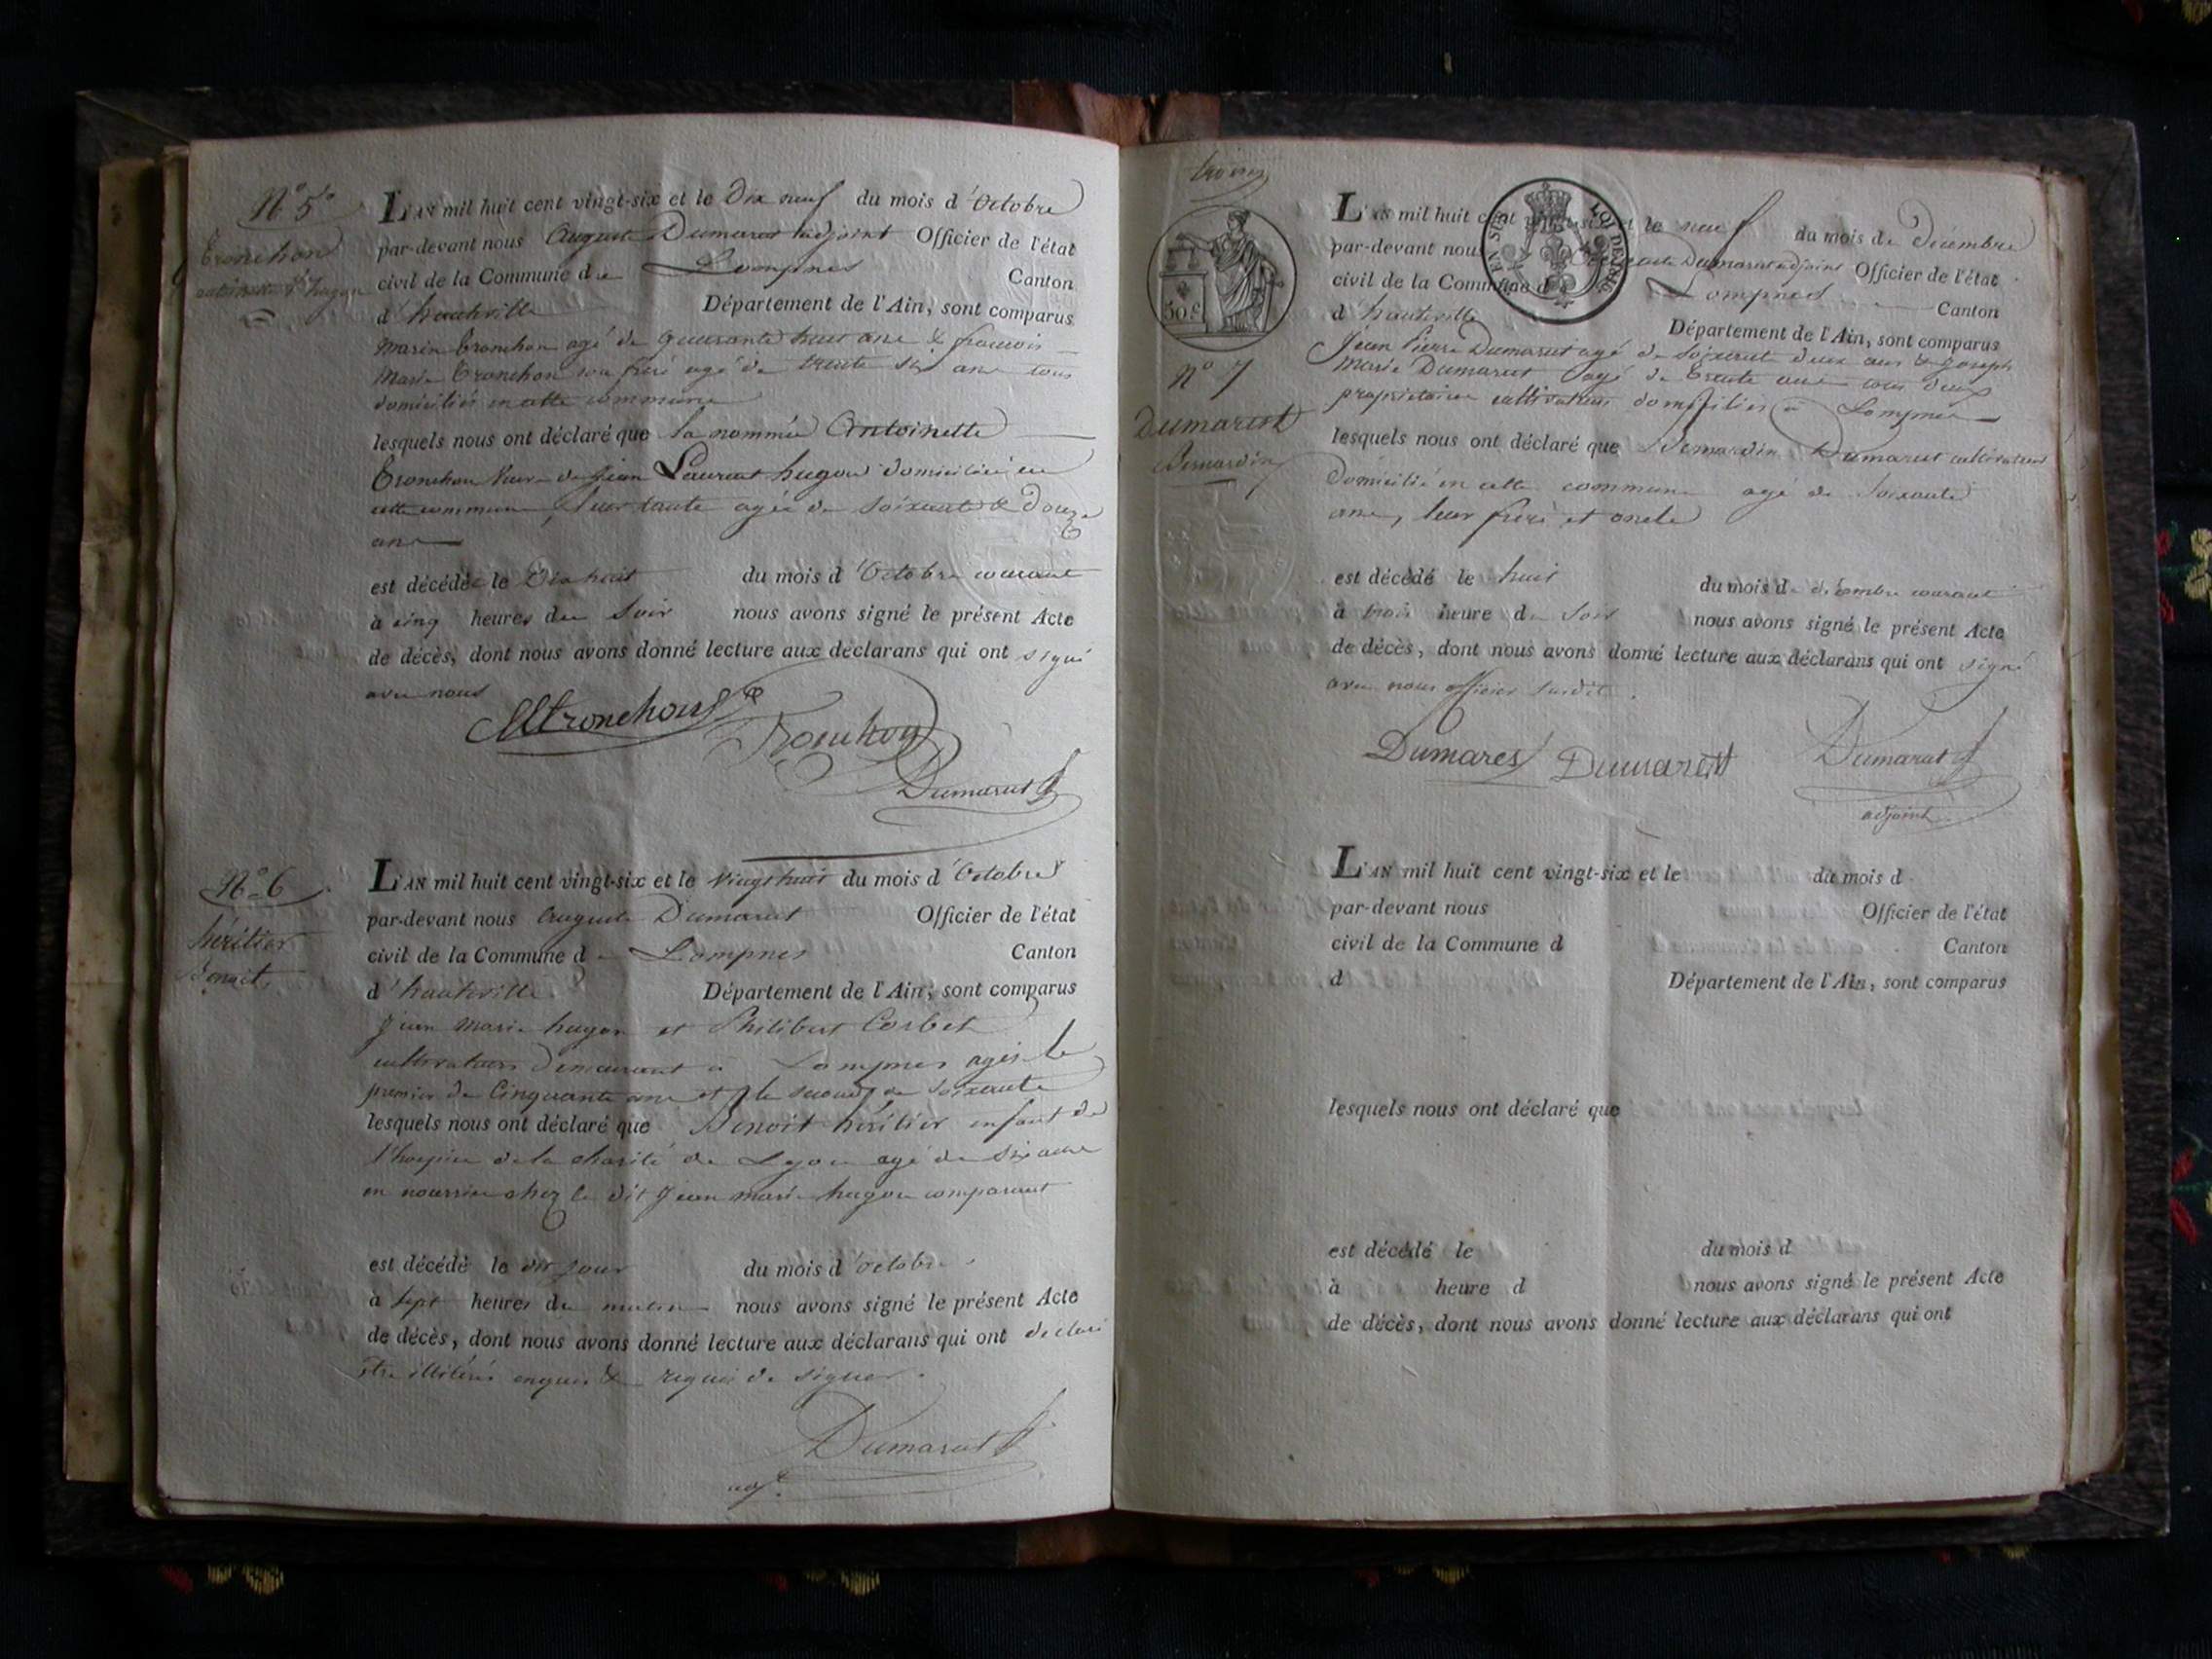 N° 5
Tronchon
antoinette Ve hugon
L'AN mil huit cent vingt-six et le Dix neuf du mois d'Octobre
par-devant nous Auguste Dumarest adjoint Officier de l'état
civil de la Commune de Lompnes Canton
d'hauteville Département de l'Ain, sont comparus
Marin tronchon agé de quarante huit ans & francois
Marie Tronchon son frère agé de trente six ans tous
domiciliés en cette commune
lesquels nous ont déclaré que la nommée Antoinette
Tronchon Veuve de Jean Laurent hugon domiciliée en
cette commune, leur tante agée de soixante & douze
ans
est décédée le Dix huit du mois d'Octobre courant
à cinq heures du Soir nous avons signé le présent Acte
de décès, dont nous avons donné lecture aux déclarans qui ont signé
avec nous
Mtronchon
Tronchon
Dumarest
N° 6
héritier
Benoit
L'AN mil huit cent vingt-six et le Vingt huit du mois d'Octobre
par-devant nous Auguste Dumarest Officier de l'état
civil de la Commune de Lompnes Canton
d'hauteville Département de l'Ain, sont comparus
Jean Marie hugon et Philibert Corbet
cultivateurs demeurant a Lompnes agés le
premier de Cinquante ans et le second de soixante
lesquels nous ont déclaré que Benoit héritier enfant de
l'hospice de la charité de Lyon agé de six ans
en nourrice chez le dit Jean marie hugon comparant
est décédé le dit jour du mois d'octobre
à sept heures du matin nous avons signé le présent Acte
de décès, dont nous avons donné lecture aux déclarans qui ont declaré
être illitérés enquis & requis de signer.
Dumarest
adj.
50 c
EN SUS
LOI DE 1816
N° 7
Dumarest
Bernardin
L'AN mil huit cent vingt-six et le neuf du mois de décembre
par-devant nous Auguste Dumarest adjoint Officier de l'état
civil de la Commune de Lompnes Canton
d'hauteville Département de l'Ain, sont comparus
Jean Pierre Dumarest agé de soixante deux ans & Joseph
Marie Dumarest agé de trente ans tous deux
propriétaires cultivateurs domiciliés à Lompnes
lesquels nous ont déclaré que Bernardin Dumarest cultivateur
Domicilié en cette commune agé de soixante
ans, leur frère et oncle
est décédé le huit du mois de décembre courant
à trois heure du soir nous avons signé le présent Acte
de décès, dont nous avons donné lecture aux déclarans qui ont signé
avec nous officier susdit.
Dumarest Dumarest Dumarest
adjoint
L'AN mil huit cent vingt-six et le du mois d
par-devant nous Officier de l'état
civil de la Commune d Canton
d Département de l'Ain, sont comparus
lesquels nous ont déclaré que
est décédé le du mois d
à heure d nous avons signé le présent Acte
de décès, dont nous avons donné lecture aux déclarans qui ont